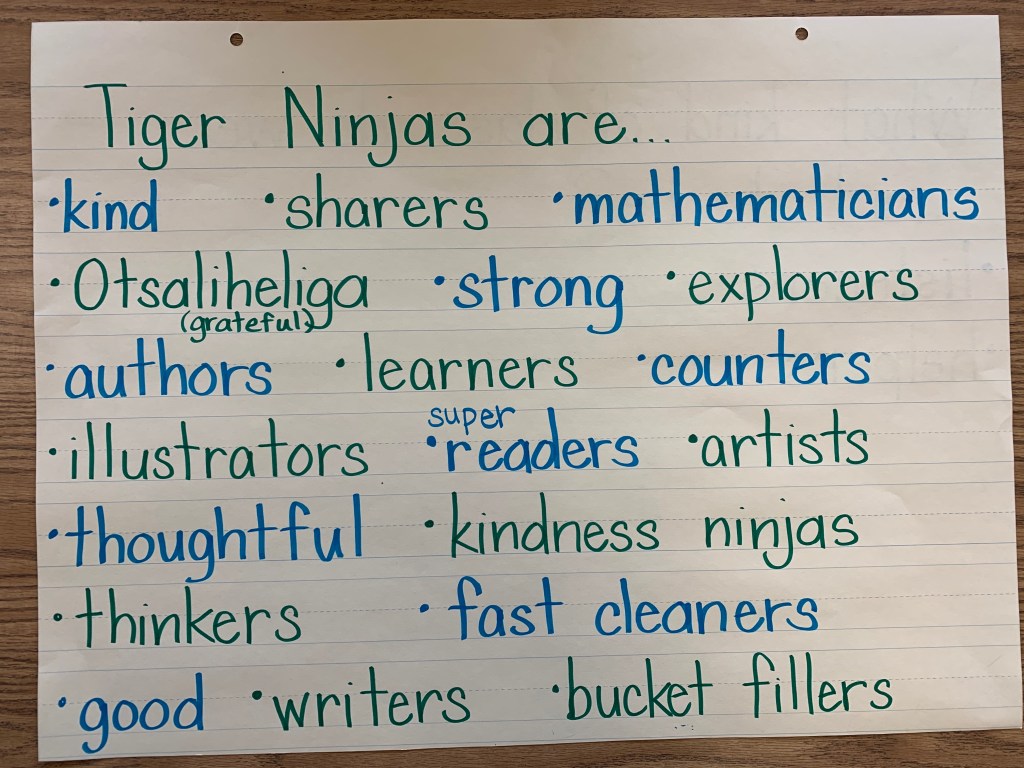 Tiger Ninjas are...
•kind •sharers •mathematicians
•Otsaliheliga •strong •explorers
(grateful)
•authors •learners •counters
super
•illustrators •readers •artists
•thoughtful •kindness ninjas
•thinkers •fast cleaners
•good •writers •bucket fillers